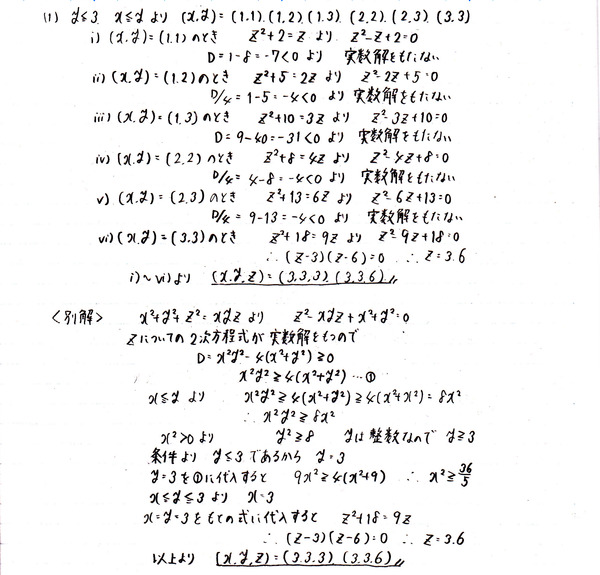 (1) y≦3, x≦y より (x,y)=(1,1),(1,2),(1,3),(2,2),(2,3),(3,3)
i) (x,y)=(1,1)のとき z²+2=z より z²-z+2=0
D=1-8=-7<0 より 実数解をもたない
ii) (x,y)=(1,2)のとき z²+5=2z より z²-2z+5=0
D/4=1-5=-4<0 より 実数解をもたない
iii) (x,y)=(1,3)のとき z²+10=3z より z²-3z+10=0
D=9-40=-31<0 より 実数解をもたない
iv) (x,y)=(2,2)のとき z²+8=4z より z²-4z+8=0
D/4=4-8=-4<0 より 実数解をもたない
v) (x,y)=(2,3)のとき z²+13=6z より z²-6z+13=0
D/4=9-13=-4<0 より 実数解をもたない
vi) (x,y)=(3,3)のとき z²+18=9z より z²-9z+18=0
∴ (z-3)(z-6)=0 ∴ z=3,6
i)~vi)より (x,y,z)=(3,3,3),(3,3,6)
<別解> x²+y²+z²=xyz より z²-xyz+x²+y²=0
zについての2次方程式が実数解をもつので
D=x²y²-4(x²+y²)≧0
x²y²≧4(x²+y²)…①
x≦y より x²y²≧4(x²+y²)≧4(x²+x²)=8x²
∴ x²y²≧8x²
x²>0より y²≧8 yは整数なので y≧3
条件より y≦3であるから y=3
y=3を①に代入すると 9x²≧4(x²+9) ∴ x²≧36/5
x≦y≦3より x=3
x=y=3をもとの式に代入すると z²+18=9z
∴ (z-3)(z-6)=0 ∴ z=3,6
以上より (x,y,z)=(3,3,3),(3,3,6)